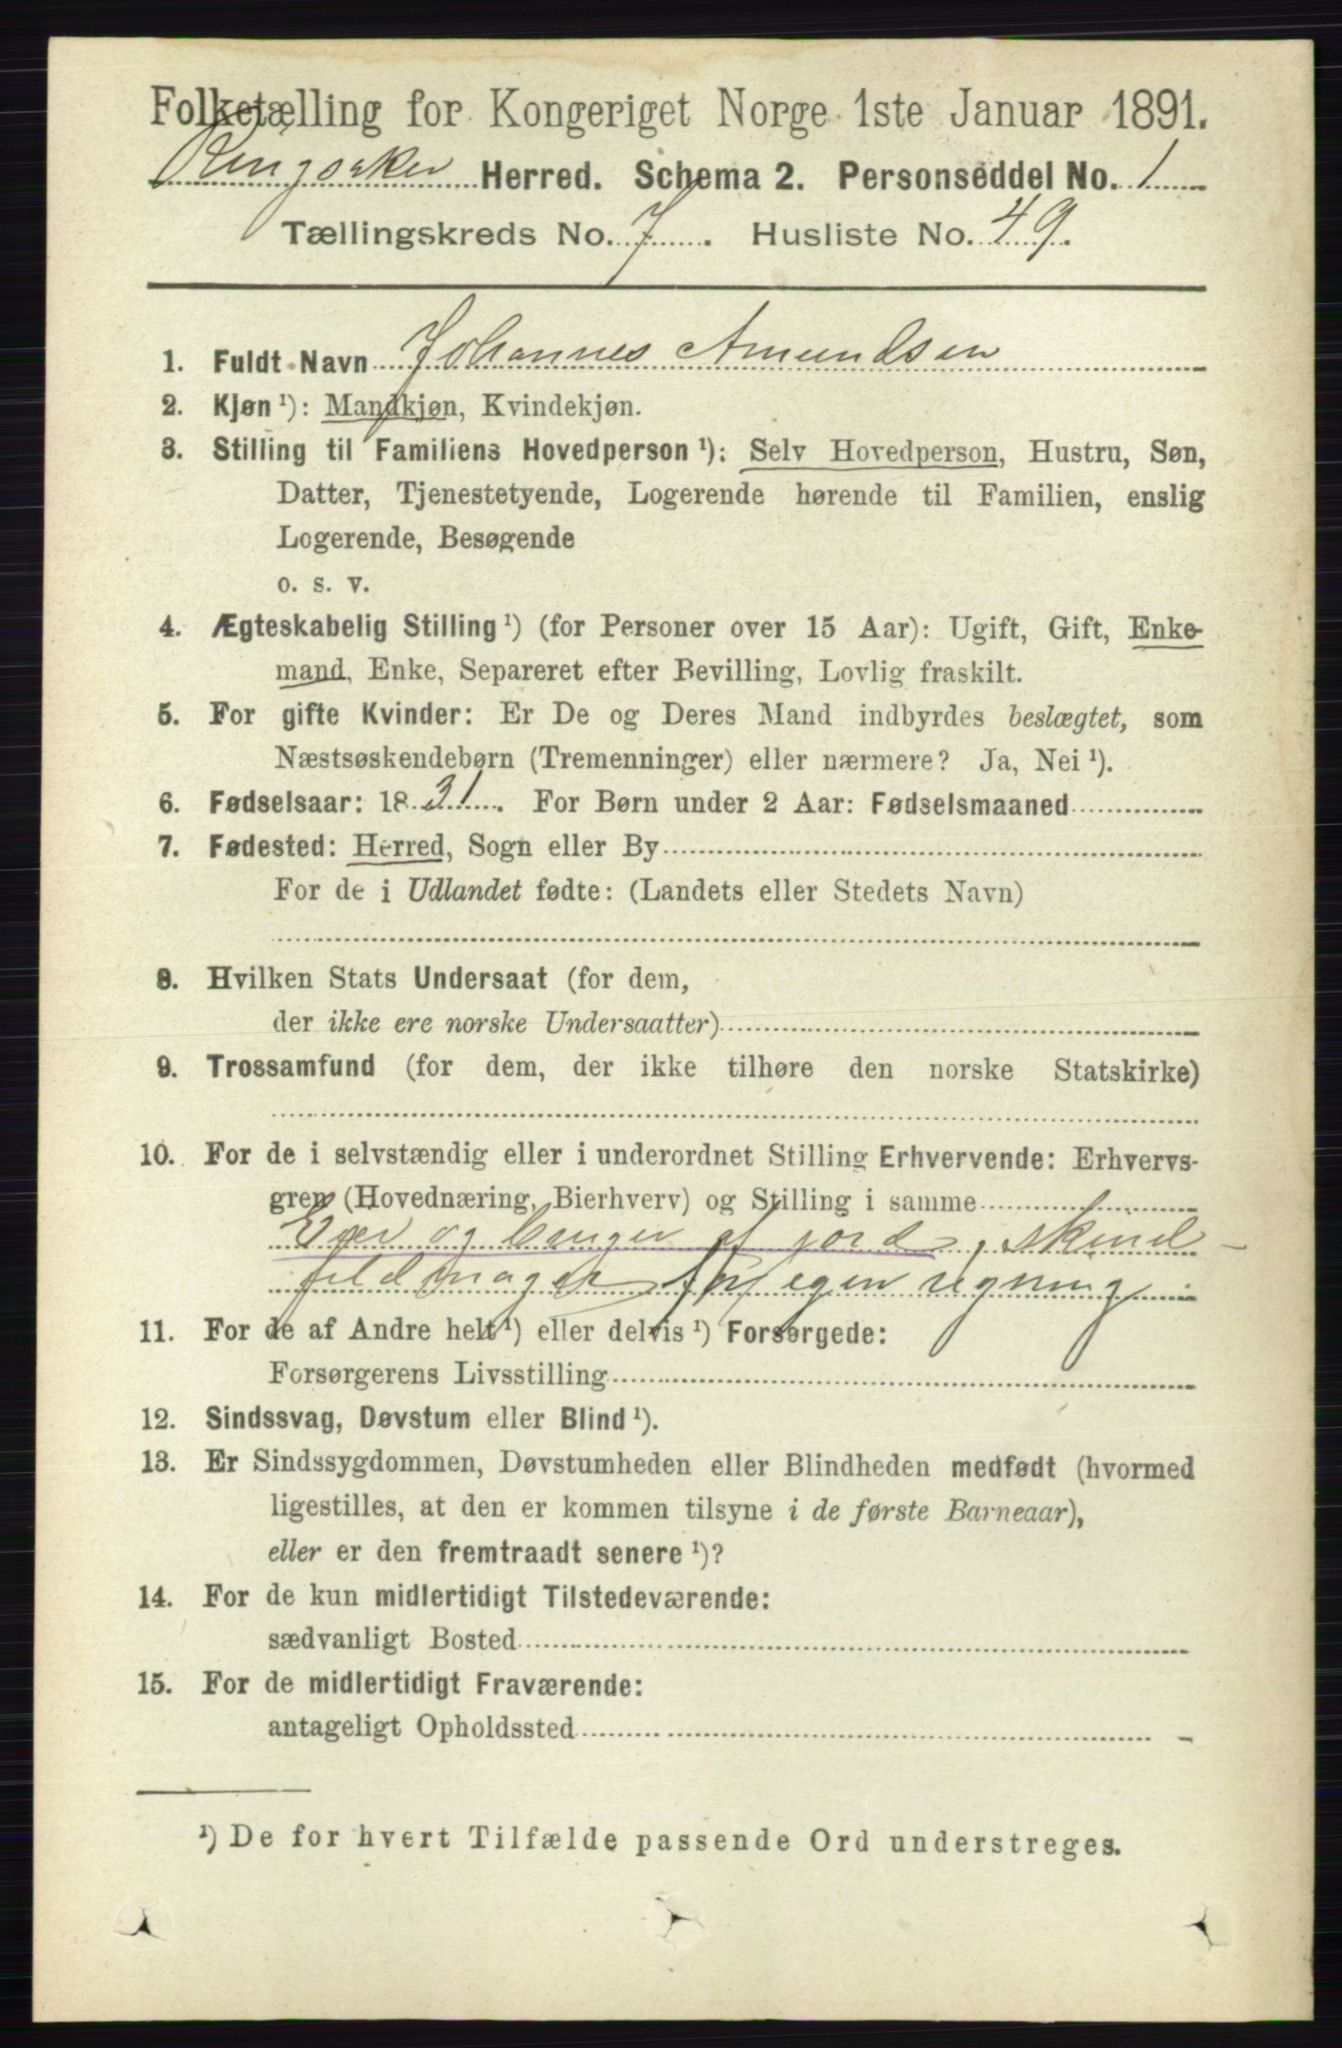 Folketælling for Kongeriget Norge 1ste Januar 1891.
Ringsaker Herred. Schema 2. Personseddel No. 1
Tællingskreds No. 7. Husliste No. 49.
1. Fuldt Navn Johannes Amundsen
2. Kjøn ¹): Mandkjøn, Kvindekjøn.
3. Stilling til Familiens Hovedperson ¹): Selv Hovedperson, Hustru, Søn,
Datter, Tjenestetyende, Logerende hørende til Familien, enslig
Logerende, Besøgende
o. s. v.
4. Ægteskabelig Stilling ¹) (for Personer over 15 Aar): Ugift, Gift, Enke-
mand, Enke, Separeret efter Bevilling, Lovlig fraskilt.
5. For gifte Kvinder: Er De og Deres Mand indbyrdes beslægtet, som
Næstsøskendebørn (Tremenninger) eller nærmere? Ja, Nei ¹).
6. Fødselsaar: 1831. For Børn under 2 Aar: Fødselsmaaned
7. Fødested: Herred, Sogn eller By
For de i Udlandet fødte: (Landets eller Stedets Navn)
8. Hvilken Stats Undersaat (for dem,
der ikke ere norske Undersaatter)
9. Trossamfund (for dem, der ikke tilhøre den norske Statskirke)
10. For de i selvstændig eller i underordnet Stilling Erhvervende: Erhvervs-
gren (Hovednæring, Bierhverv) og Stilling i samme
Eier og bruger af jord, skind-
feldmager for egen regning
11. For de af Andre helt ¹) eller delvis ¹) Forsørgede:
Forsørgerens Livsstilling
12. Sindssvag, Døvstum eller Blind ¹).
13. Er Sindssygdommen, Døvstumheden eller Blindheden medfødt (hvormed
ligestilles, at den er kommen tilsyne i de første Barneaar),
eller er den fremtraadt senere ¹)?
14. For de kun midlertidigt Tilstedeværende:
sædvanligt Bosted
15. For de midlertidigt Fraværende:
antageligt Opholdssted
¹) De for hvert Tilfælde passende Ord understreges.